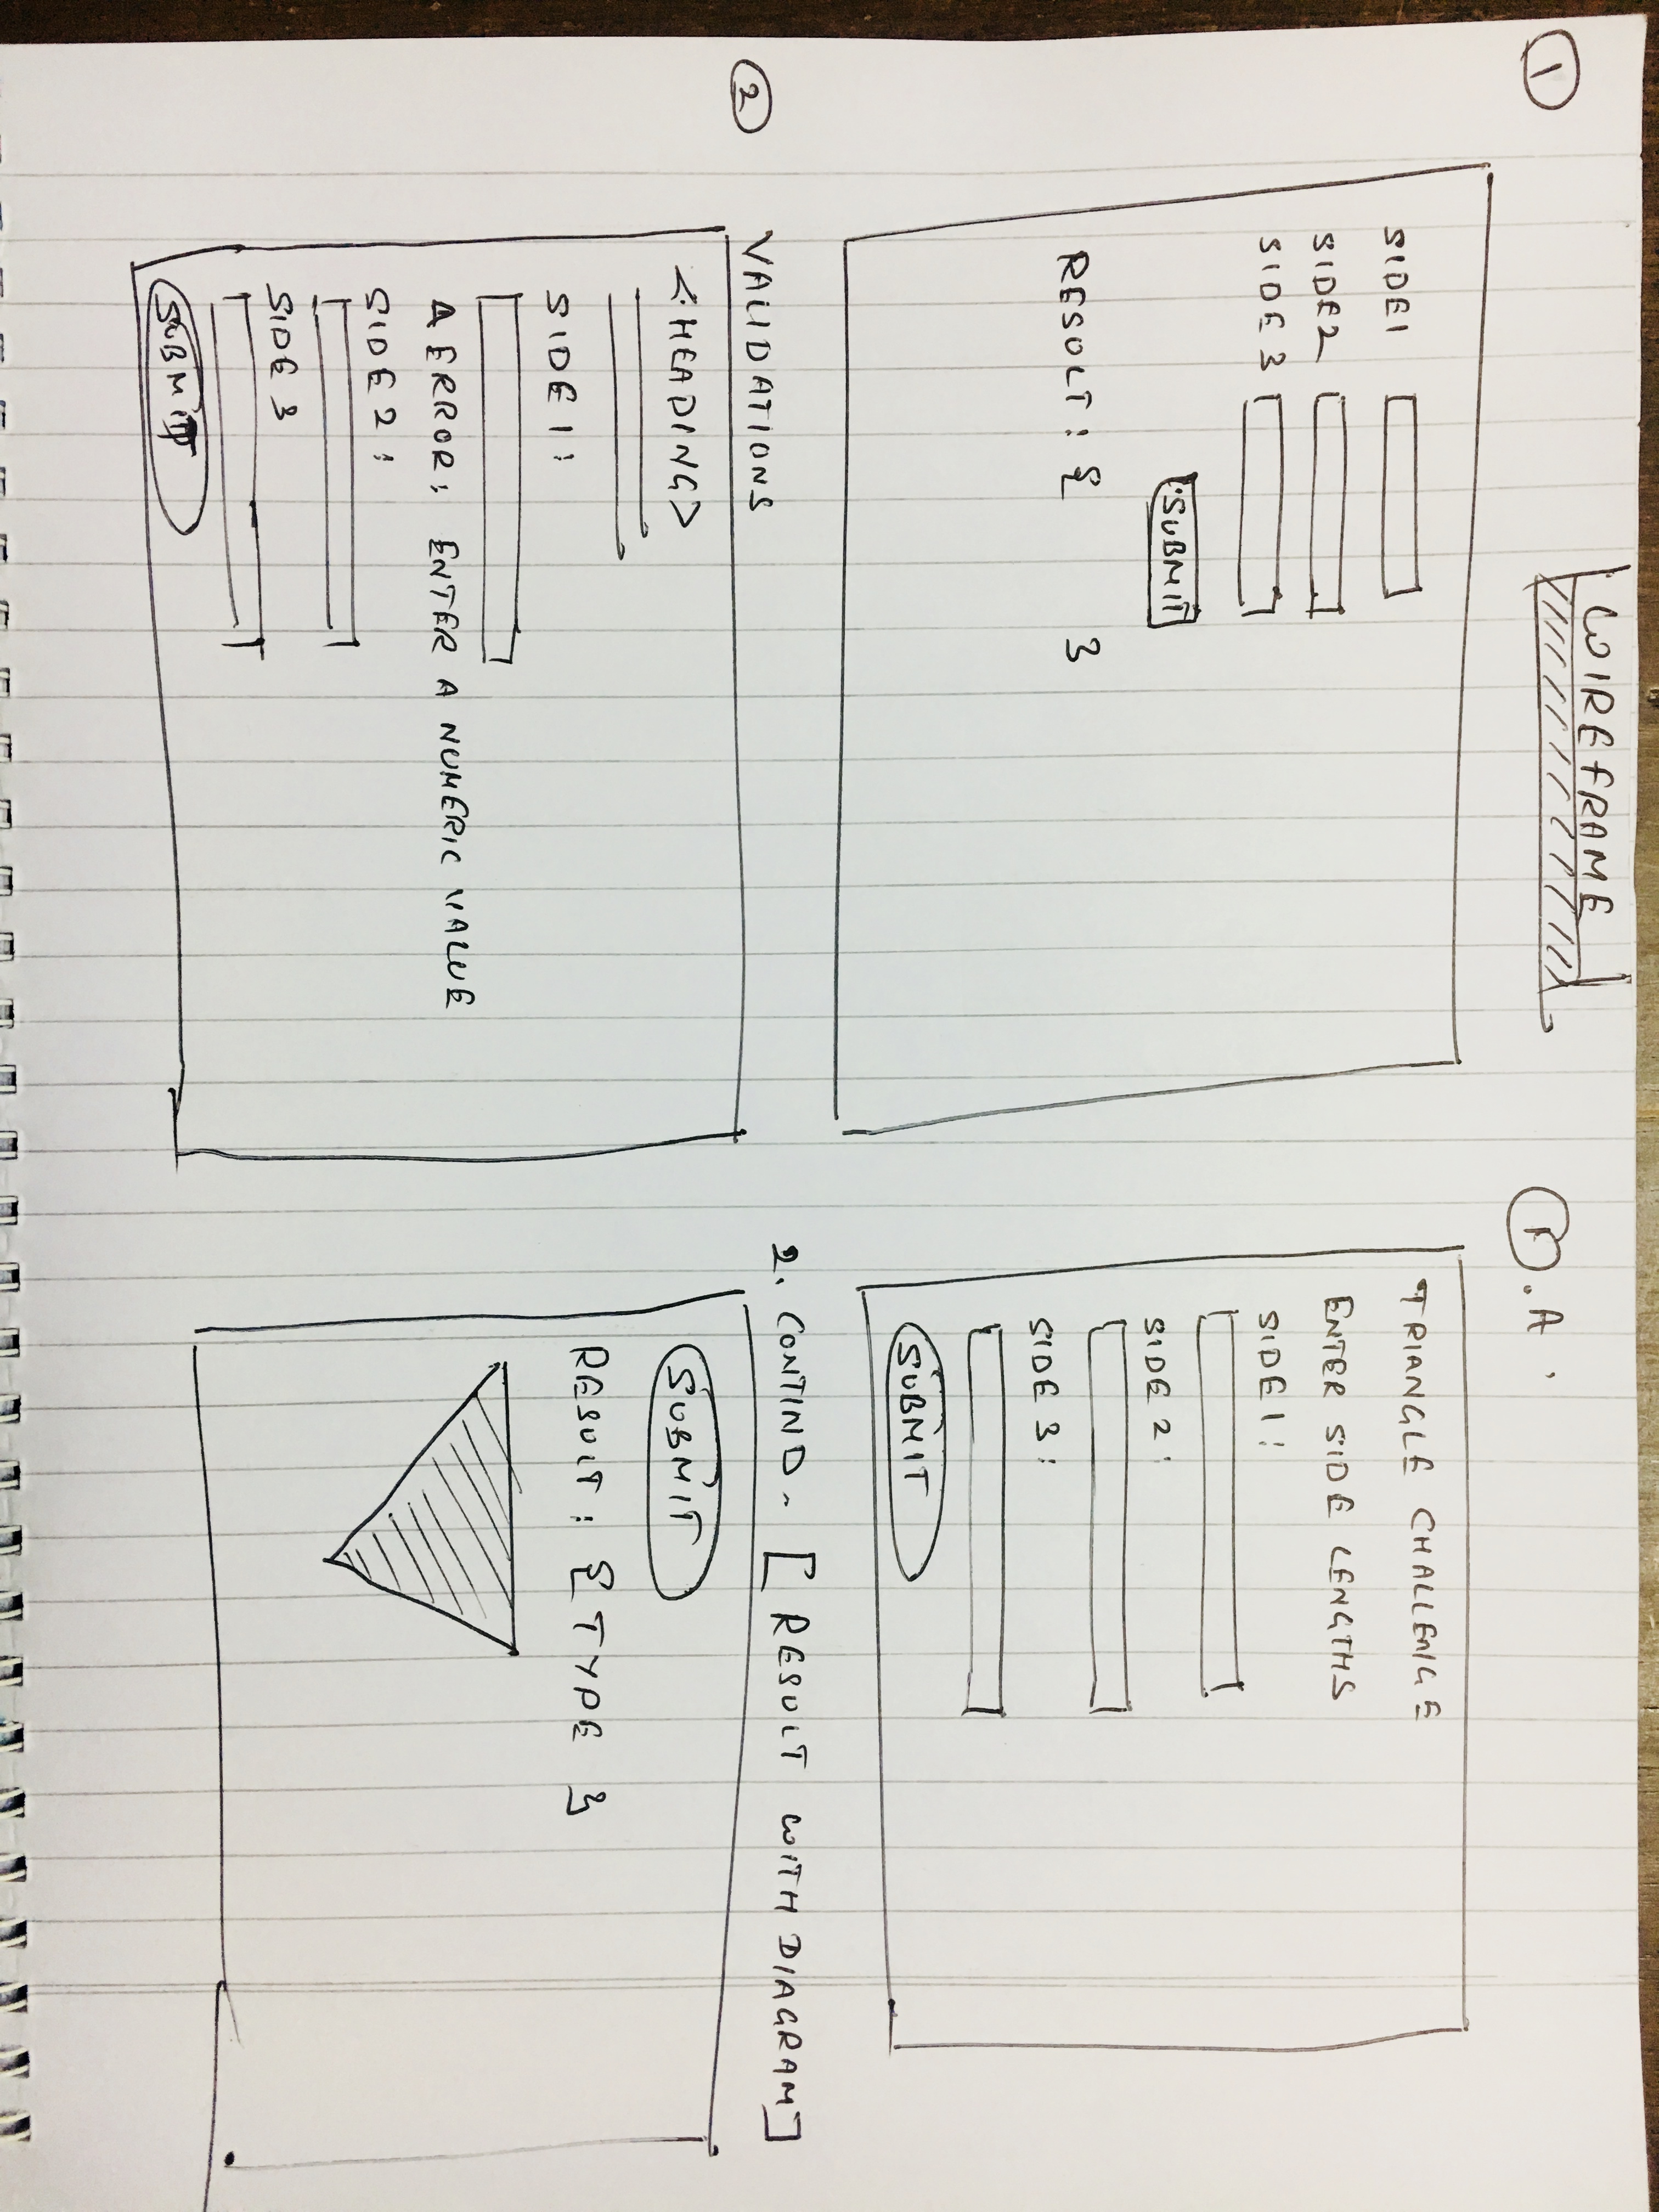 WIREFRAME
1
SIDE1
SIDE2
SIDE 3
SUBMIT
RESULT: { }
1.A
TRIANGLE CHALLENGE
ENTER SIDE LENGTHS
SIDE 1:
SIDE 2:
SIDE 3:
SUBMIT
2 VALIDATIONS
<HEADING>
SIDE 1:
ERROR: ENTER A NUMERIC VALUE
SIDE 2:
SIDE 3
SUBMIT
2. CONTIND. [RESULT WITH DIAGRAM]
SUBMIT
RESULT: { TYPE }